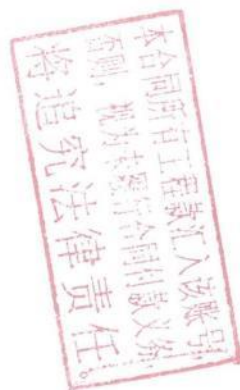 本合同所有工程款汇入该账号,
否则，视为未履行合同付款义务,
将追究法律责任。